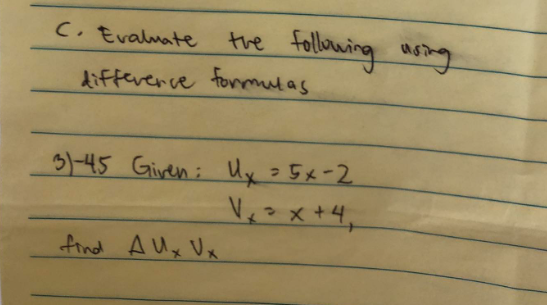 C. Evaluate the following using
difference formulas
3)-45 Given: Ux = 5x-2
Vx = x + 4,
find Δ Ux Vx